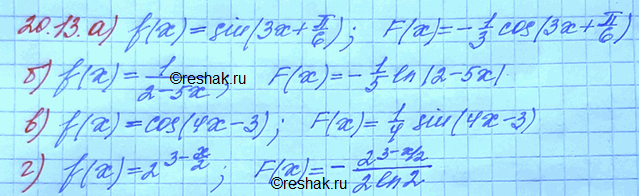 20.13. а) f(x)=sin(3x+π/6); F(x)=-1/3 cos(3x+π/6)
б) f(x)=1/(2-5x); F(x)=-1/5 ln|2-5x|
©reshak.ru
в) f(x)=cos(4x-3); F(x)=1/4 sin(4x-3)
г) f(x)=2^(3-x/2); F(x)=-2^(3-x/2)/(2ln2)
©reshak.ru